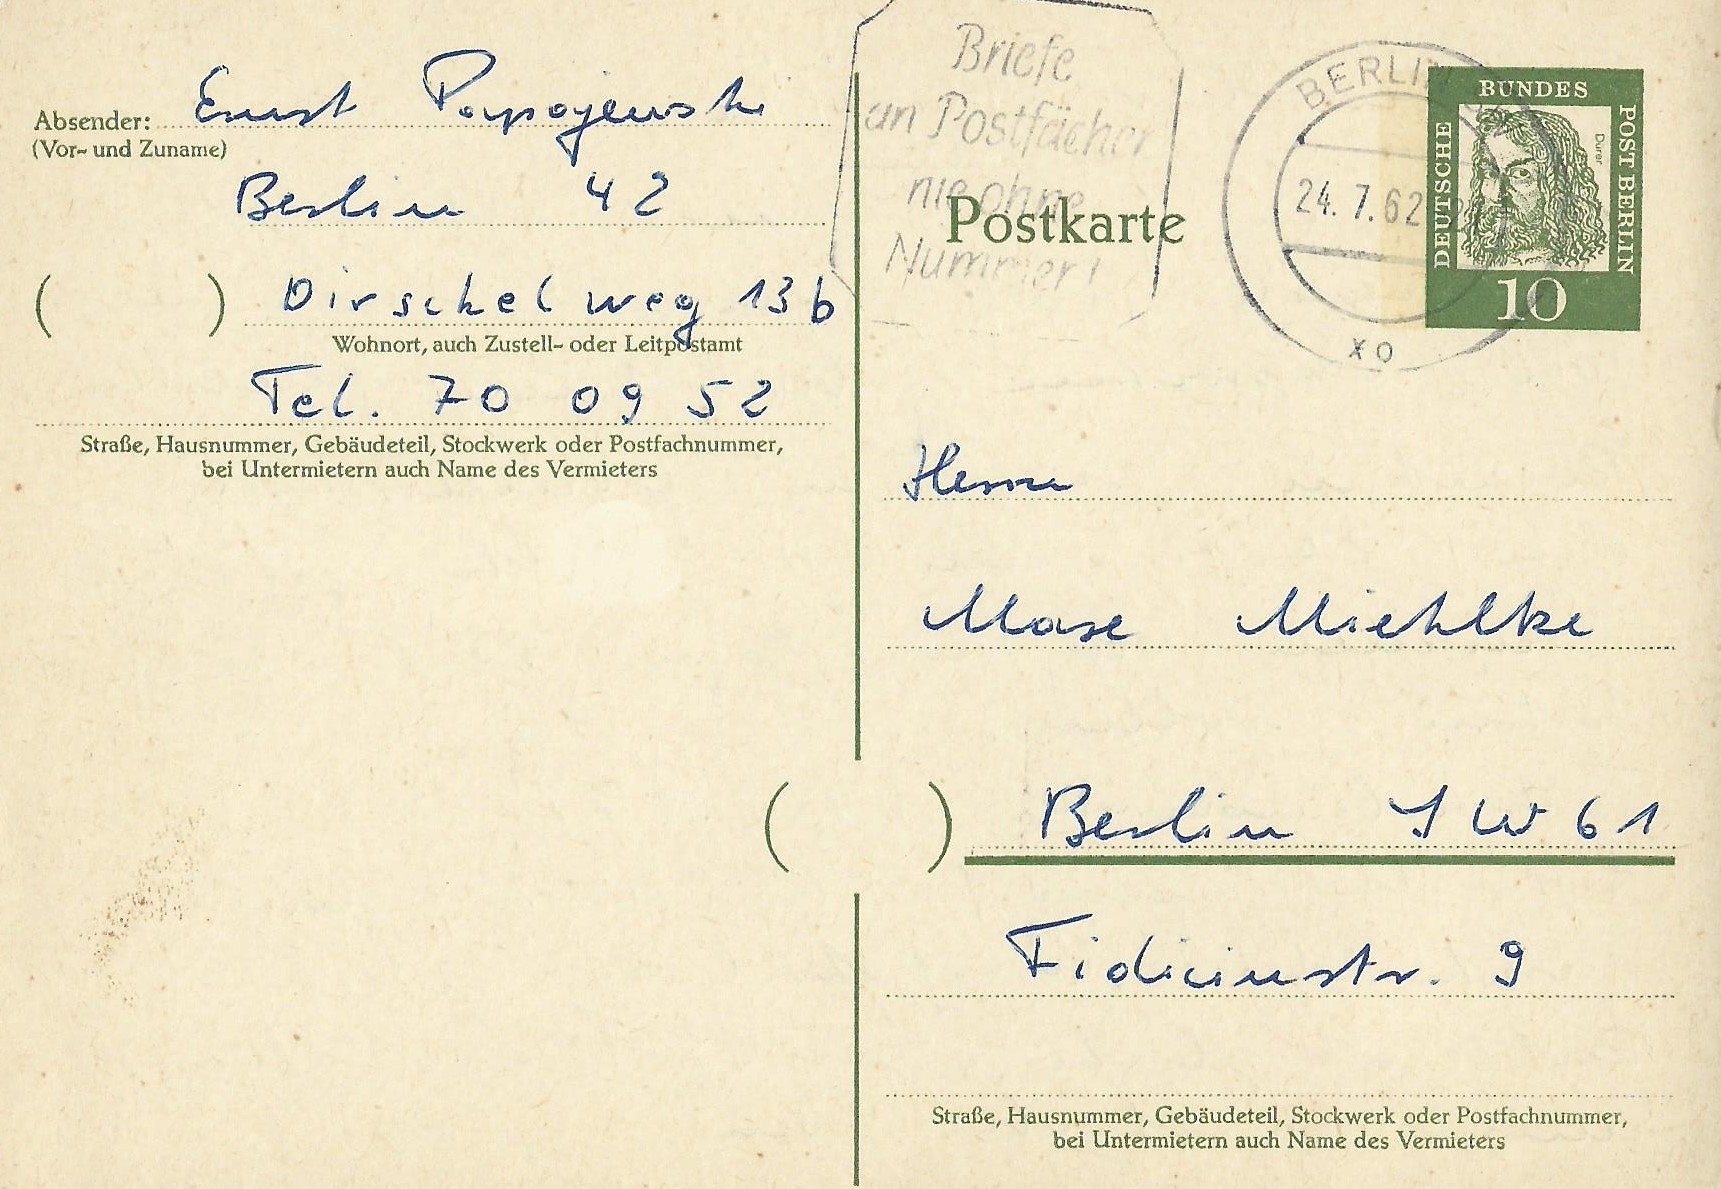 Absender: Ernst Papojewski
(Vor- und Zuname)
Berlin 42
( ) Dirschelweg 13b
Wohnort, auch Zustell- oder Leitpostamt
Tel. 70 09 52
Straße, Hausnummer, Gebäudeteil, Stockwerk oder Postfachnummer,
bei Untermietern auch Name des Vermieters
Briefe
an Postfächer
nie ohne
Nummer!
Postkarte
BERLIN
24.7.62
XO
BUNDES
DEUTSCHE
POST BERLIN
Dürer
10
Herrn
Miehlke
( ) Berlin SW 61
Fidicinstr. 9
Straße, Hausnummer, Gebäudeteil, Stockwerk oder Postfachnummer,
bei Untermietern auch Name des Vermieters